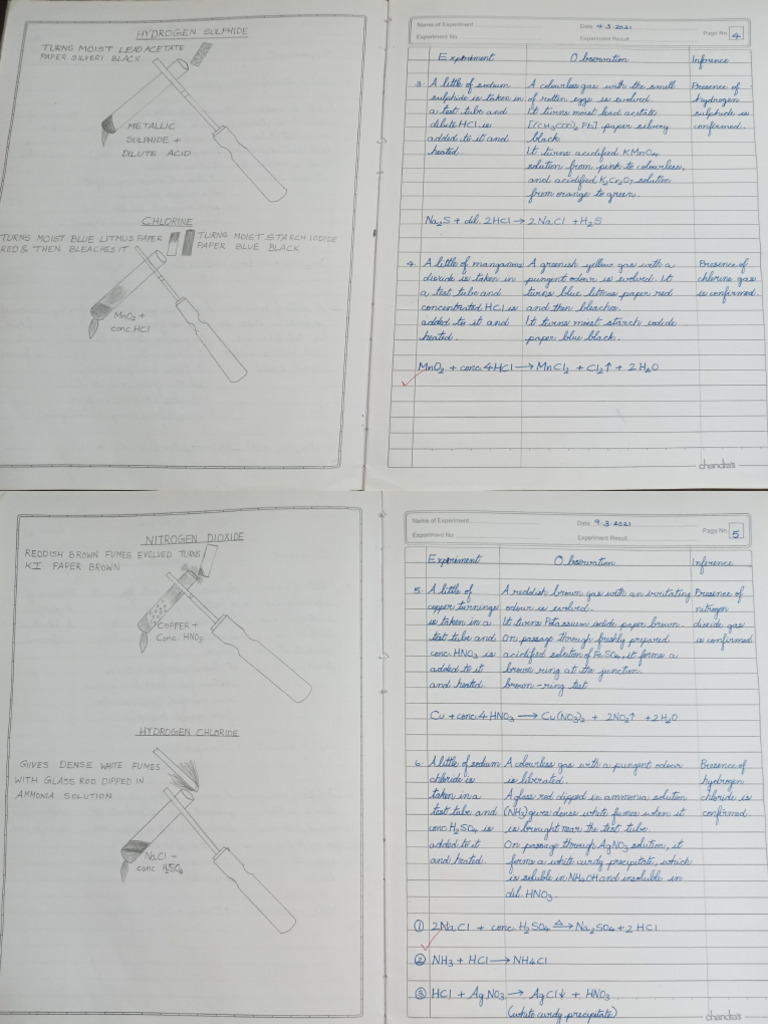 HYDROGEN SULPHIDE
TURNS MOIST LEAD ACETATE
PAPER SILVERY BLACK
METALLIC
SULPHIDE +
DILUTE ACID
CHLORINE
TURNS MOIST BLUE LITMUS PAPER
RED & THEN BLEACHES IT
TURNS MOIST STARCH IODIDE
PAPER BLUE BLACK
MnO2 +
conc. HCl
Name of Experiment
Date 4.3.2021
Page No. 4
Experiment No.
Experiment Result
Experiment Observation Inference
3. A little of sodium
sulphide is taken in
a test tube and
dilute HCl is
added to it and
heated.
A colourless gas with the smell
of rotten eggs is evolved.
It turns moist lead acetate
[(CH3COO)2 Pb] paper silvery
black.
It turns acidified KMnO4
solution from pink to colourless,
and acidified K2Cr2O7 solution
from orange to green.
Presence of
hydrogen
sulphide is
confirmed.
Na2S + dil. 2HCl → 2NaCl + H2S
4. A little of manganese
dioxide is taken in
a test tube and
concentrated HCl is
added to it and
heated.
A greenish yellow gas with a
pungent odour is evolved. It
turns blue litmus paper red
and then bleaches.
It turns moist starch iodide
paper blue black.
Presence of
chlorine gas
is confirmed.
MnO2 + conc. 4HCl → MnCl2 + Cl2↑ + 2H2O
chandra's
NITROGEN DIOXIDE
REDDISH BROWN FUMES EVOLVED TURNS
KI PAPER BROWN
COPPER +
Conc. HNO3
HYDROGEN CHLORIDE
GIVES DENSE WHITE FUMES
WITH GLASS ROD DIPPED IN
AMMONIA SOLUTION
NaCl +
conc H2SO4
Name of Experiment
Date 9.3.2021
Page No. 5
Experiment No.
Experiment Result
Experiment Observation Inference
5. A little of
copper turnings
is taken in a
test tube and
conc. HNO3 is
added to it
and heated
A reddish brown gas with an irritating
odour is evolved.
It turns Potassium iodide paper brown.
On passage through freshly prepared
acidified solution of FeSO4, it forms a
brown ring at the junction.
brown-ring test
Presence of
nitrogen
dioxide gas
is confirmed
Cu + conc. 4HNO3 → Cu(NO3)2 + 2NO2↑ + 2H2O
6. A little of sodium
chloride is
taken in a
test tube and
conc. H2SO4 is
added to it
and heated.
A colourless gas with a pungent odour
is liberated.
A glass rod dipped in ammonia solution
(NH3) gives dense white fumes when it
is brought near the test tube.
On passage through AgNO3 solution, it
forms a white curdy precipitate, which
is soluble in NH4OH and insoluble in
dil. HNO3.
Presence of
hydrogen
chloride is
confirmed.
① 2NaCl + conc. H2SO4 △→ Na2SO4 + 2HCl
② NH3 + HCl → NH4Cl
③ HCl + AgNO3 → AgCl↓ + HNO3
(white curdy precipitate)
chandra's